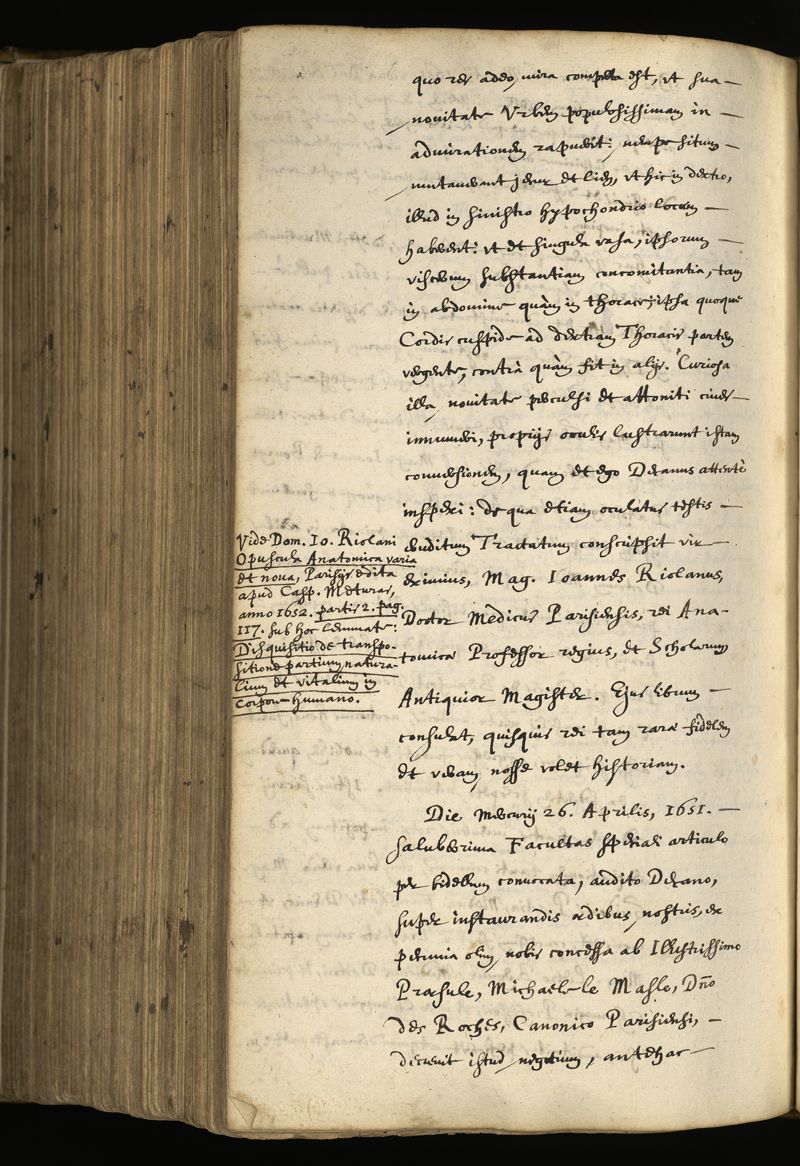 quo res adeo mira comperta est, ut sua
novitate Urbem populosissimam in
admirationem rapuerit: nempe situm
mutaverant jecur et lien, ut hic in dextro,
illud in sinistro hypochondrio locum
haberent: ut et singula vasa, ipsorum
viscerum substantiam concomitantia, tam
in abdomine quàm in thorace, ipsa quoque
Cordis cuspide ad dextram Thoracis partem
vergente, contrà quàm fit in alijs. Curiosa
illa novitate perculsi et attoniti cives
innumeri, proprijs oculis lustrarunt istam
conversionem, quam et ego Decanus attentè
inspexi: de qua etiam oculatus testis
eruditum Tractatum conscripsit vir
eximius, Mag. Ioannes Riolanus,
Doctor Medicus Parisiensis, rei Ana-
tomicæ Professor regius, et Scholarum
Antiquior Magister. Ejus librum
consulat, quisquis rei tam raræ fidelem
et veram nosse volet historiam.
Vide Dom. Io. Riolani
Opuscula Anatomica varia
et nova, Parisijs edita
apud Casp. Meturas,
anno 1652. partis 2. pag.
117. sub hoc lemmate:
Disquisitio de transpo-
sitione partium natura-
lium et vitalium in
corpore humano.
Die Mercurij 26. Aprilis, 1651.
saluberrima Facultas speciali articulo
per bidellum convocata, audito Decano,
super instaurandis ædibus nostris, ex
pecunia olim nobis concessa ab Illustrissimo
Præsule, Michaele le Masle, Dño
des Roches, Canonico Parisiensi,
decrevit istud negotium, antehac